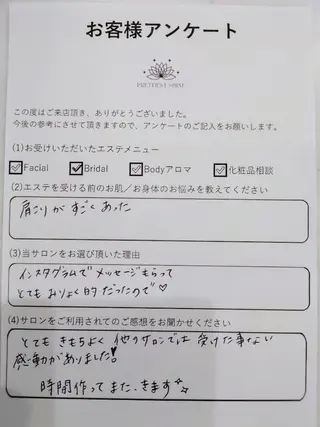 お客様アンケート
PRETTIEST SPIRIT
この度はご来店頂き、ありがとうございました。
今後の参考にさせて頂きますので、アンケートのご記入をお願いします。
(1)お受けいただいたエステメニュー
Facial Bridal Bodyアロマ 化粧品相談
(2)エステを受ける前のお肌/お身体のお悩みを教えてください
肩こりがすごくあった
(3)当サロンをお選び頂いた理由
インスタグラムでメッセージもらって
とてもみりょく的だったので♡
(4)サロンをご利用されてのご感想をお聞かせください
とてもきもちよく他のサロンでは受けた事ない
感動がありました!
時間作ってまた、きます